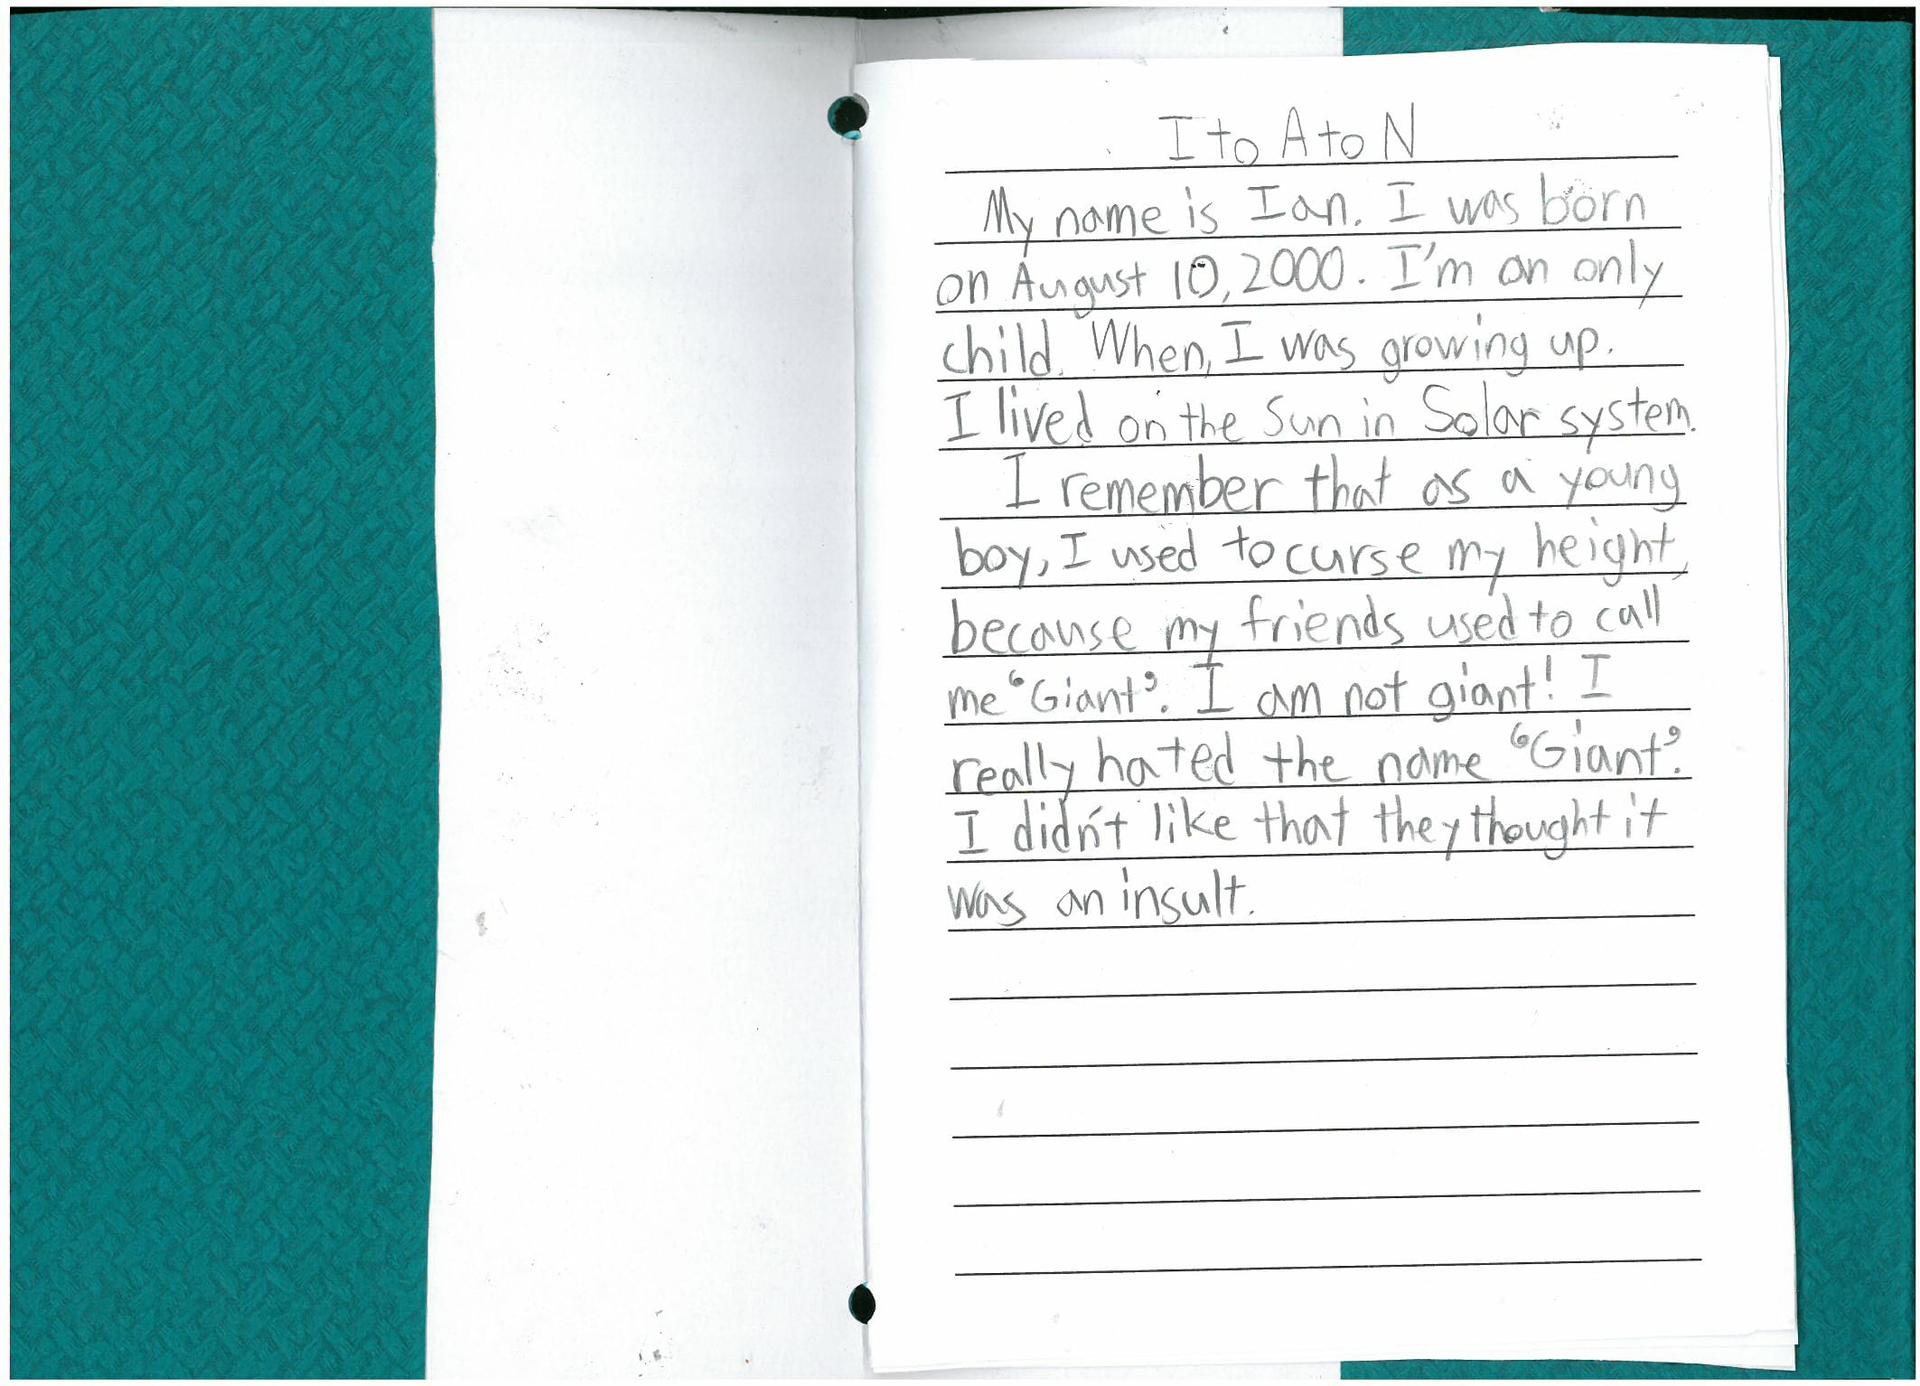 I to A to N
My name is Ian. I was born
on August 10, 2000. I'm an only
child. When, I was growing up.
I lived on the Sun in Solar system.
I remember that as a young
boy, I used to curse my height,
because my friends used to call
me ‘Giant’. I am not giant! I
really hated the name ‘Giant’.
I didn't like that they thought it
was an insult.